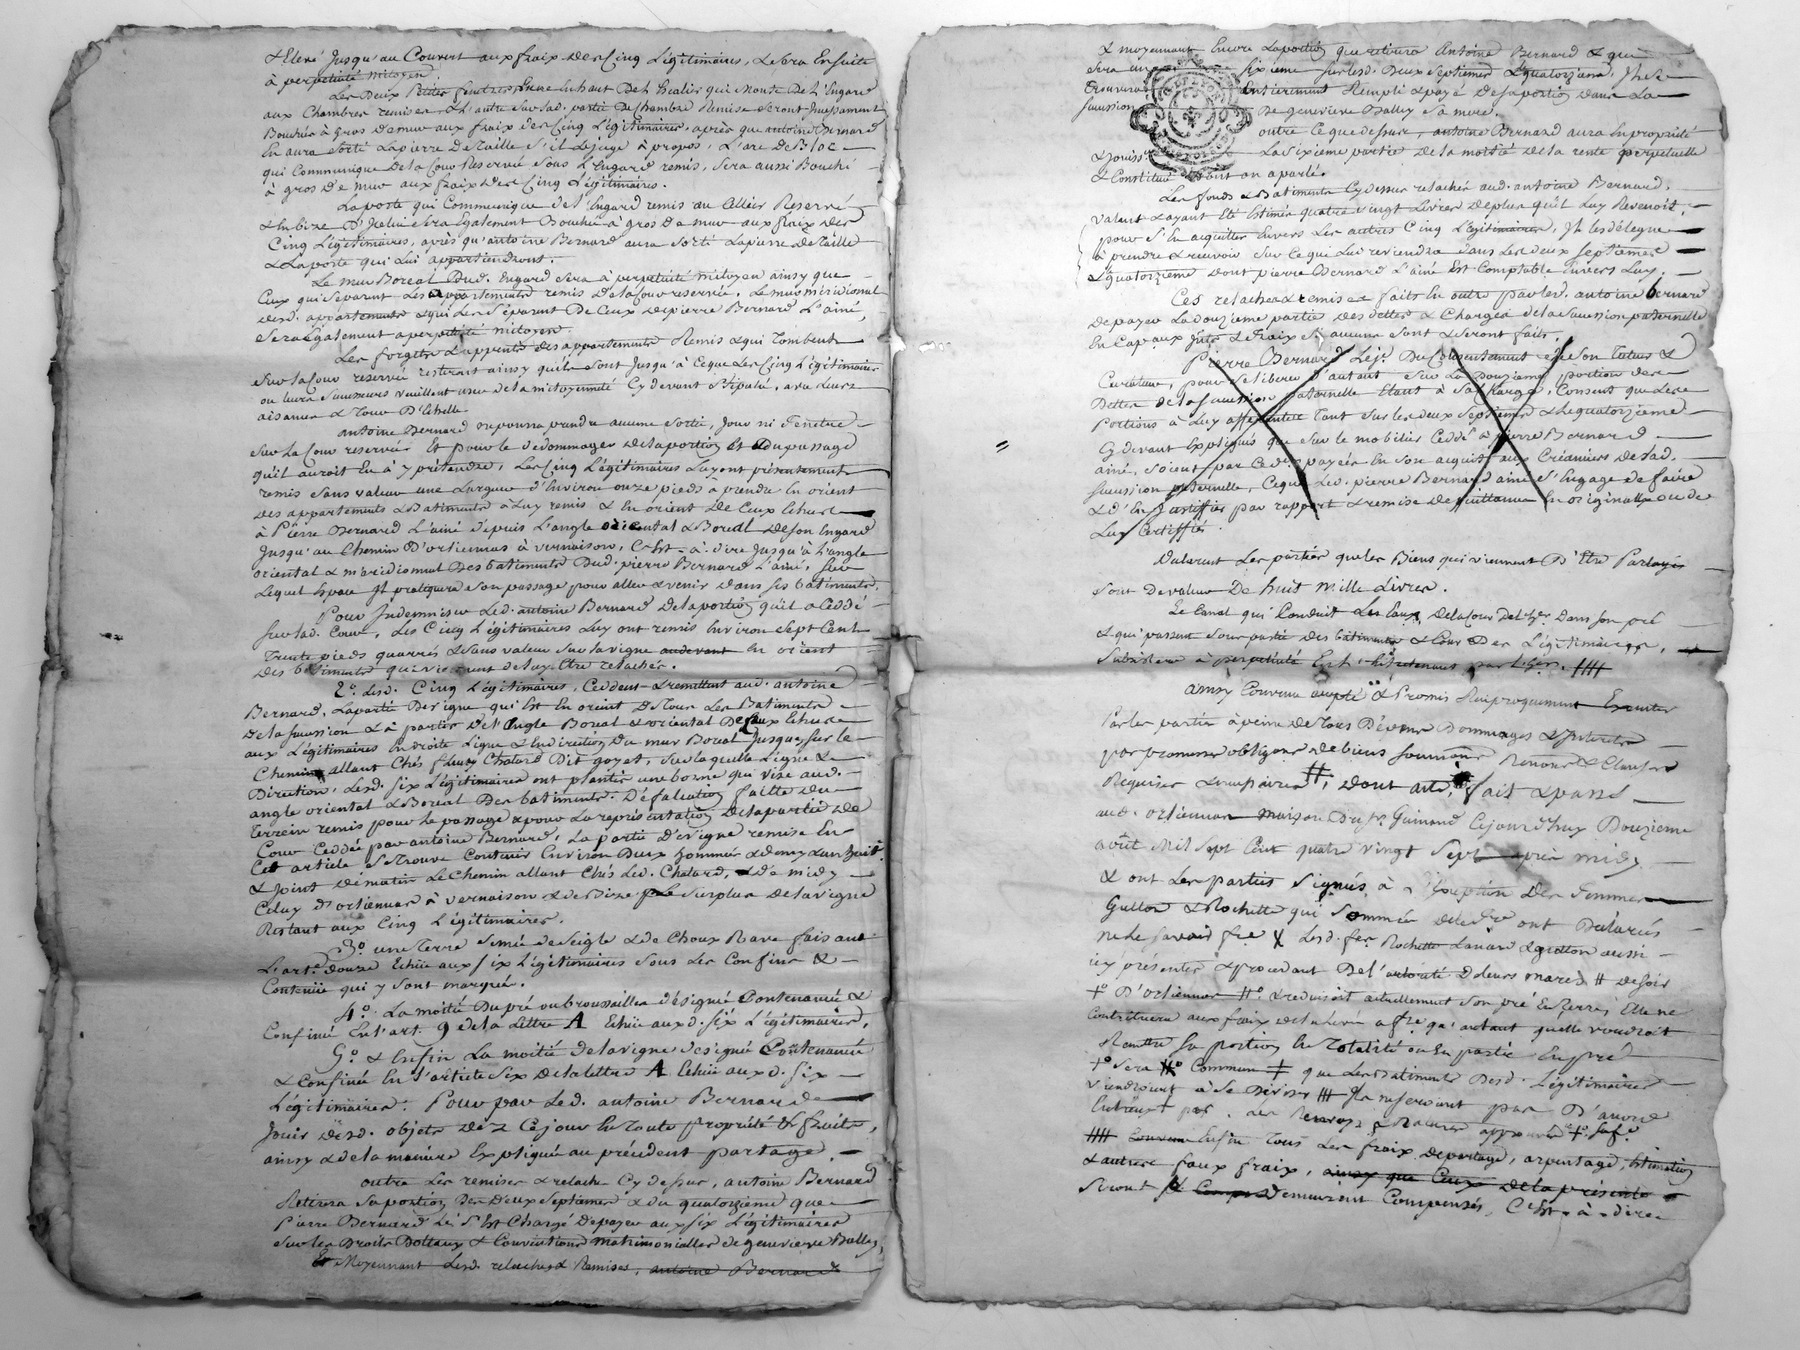 & Elevé Jusqu'au Couvert aux fraix des Cinq Légitimaires, & sera Ensuite
à perpetuité mitoyen
Les Deux petites fenetres, l'une En haut De l'Escalier qui Monte De L'Engard
aux Chambres remises & L'autre sur lad. partie De Chambre Remise seront Incessament
Bouchés à Gros De mur aux fraix des Cinq Légitimaires, après que antoine Bernard
En aura sorti La pierre De taille s'il Le juge à propos. L'arc De Bloc
qui Communique De la Cour Reservée sous L'Engard remis, sera aussi Bouché
à gros De mur aux fraix Des Cinq Légitimaires.
La porte qui Communique De l'Engard remis au Cellier Reservé
& En bize D'Jcelui sera Egalement Bouchée à gros De mur aux fraix des
Cinq Légitimaires, après qu'antoine Bernard aura sorti La pierre De taille
& La porte qui Lui appartiendront.
Le mur Boreal Dud. Engard sera à perpetuité mitoyen ainsy que
Ceux qui separent Les appartements remis De la Cour reservée. Le mur méridional
desd. appartements & qui Les separent De Ceux De pierre Bernard L'ainé,
sera Egalement a perpetuité mitoyen.
Les forgets & appentis des appartements Remis & qui Tombent
sur la Cour reservée resteront ainsy qu'ils sont Jusqu'à Ceque Les Cinq Légitimaires
ou leurs successeurs veuillent user de la mitoyenneté Cy devant stipulé, avec leurs
aisances & Tour D'Echelle
antoine Bernard ne pourra prendre aucune sortie, Jour ni Fenêtre
sur La Cour reservée Et pour le Dédommager De la portion Et Du passage
qu'il auroit Eu à y prétendre, Les Cinq Légitimaires Luy ont présentement
remis sans valeur une Largeur d'Environ onze pieds à prendre En orient
des appartements & Batiments à Luy remis & En orient de Ceux Echus
à Pierre Bernard L'ainé Depuis L'angle oriental & Boreal De son Engard
Jusqu'au Chemin D'ortiennas à vernaison, C'est-à-dire Jusqu'à L'angle
oriental & méridional Des batiments Dud. pierre Bernard L'ainé, sur
Lequel Espace Jl pratiquera son passage pour aller & venir dans ses batiments.
Pour Indemniser Led. antoine Bernard De la portion qu'il a Ceddé
sur lad. Cour, Les Cinq Légitimaires Luy ont remis Environ sept Cent
Trente pieds quarrés & sans valeur sur la vigne En orient
des batiments qui viennent de luy Etre relachés.
2.° Lesd. Cinq Légitimaires, Ceddent & remettent aud. antoine
Bernard, La partie De vigne qui Est En orient De tous Les Batiments
De la succession & à partir De l'Angle Boreal & oriental De Ceux Echus
aux Légitimaires En droite Ligne & En direction Du mur Boreal Jusques sur le
Chemin allant Chés fleury Chatard Dit goyet, sur laquelle Ligne &
Direction, Lesd. six Légitimaires ont plantés une borne qui vise aud.
angle oriental & Boreal Des batiments. Défalcation faitte du
Terrein remis pour le passage & pour La représentation De la partie De
Cour Ceddée par antoine Bernard, La partie De vigne remise En
Cet article se trouve Contenir Environ Deux hommées & demy & un huit.
& Joint De matin Le Chemin allant Chés Led. Chatard, & De midy
Celuy d'ortiennas à vernaison & de Bize Le surplus De la vigne
Restant aux Cinq Légitimaires.
3.° une Terre semée de seigle & de Choux Rave fais ant
L'art. douze Echüe aux six Légitimaires sous Les Confins &
Contenüe qui y sont marqués.
4.° La moitié Du pré ou broussailles désigné Contenancé &
Confiné En l'art. 9 de la Lettre A Echüe auxd. six Légitimaires,
5.° & Enfin La moitié De la vigne désigné Contenancé
& Confinée En l'article six De la lettre A Echüe auxd. six
Légitimaires. Pour par Led. antoine Bernard
Jouir desd. objets Dès Ce jour En Toute propriété & fruits,
ainsy & de la maniere Expliquée au précédent partage.
outre Les remises & relaches Cy dessus, antoine Bernard
Retirera sa portion Des Deux septiemes & du quatorzieme que
Pierre Bernard L'ainé s'Est Chargé De payer aux six Légitimaires
sur Les Droits Dottaux & Conventions Matrimonialles de genevieve Bally,
Et Moyennant Lesd. relaches & Remises, antoine Bernard
& moyennant Encore La portion que retirera Antoine Bernard & qui
sera un sixieme sur lesd. Deux septiemes & quatorzieme, Jl se
Trouvera Entierement Rempli & payé De sa portion Dans La
succession De genevieve Bally sa mere.
outre Ce que dessus, antoine Bernard aura En propriété
& Jouiss. La sixieme partie De la moitié De la rente perpetuelle
& Constituée Dont on a parlé.
Les fonds & Batiments Cy dessus relachés aud. antoine Bernard,
valant & ayant Eté Estimés quatre vingt Livres De plus qu'il Luy Revenoit,
pour s'En acquitter Envers Les autres Cinq Légitimaires, Jl les délegue
à prendre & recevoir sur Ce que Lui reviendra dans Les deux septiemes
& quatorzieme Dont pierre Bernard L'ainé Est Comptable Envers Luy.
Ces relaches & remises faits En outre par led. antoine bernard
De payer La douzieme partie des dettes & Charges de la succession paternelle
En Capitaux Jnts & fraix si aucuns sont & seront faits.
Pierre Bernard Léj. Du Consentement de son Tuteur &
Curateur, pour se liberer d'autant sur La Douzieme portion des
Dettes de la succession paternelle Etant à sa Charge, Consent que Les
Portions à Luy afferentes Tant sur les deux septiemes & Le quatorzieme
Cy devant Expliqués que sur le mobilier Ceddé à pierre Bernard
ainé, soient par Ced. payés En son acquit aux Créanciers De lad.
succession paternelle, Ce que Led. pierre Bernard ainé s'Engage De faire
& d'En Justiffier par rapport & remise De quittances En originalles ou de
Luy Certiffiés.
Déclarent Les parties que les Biens qui viennent D'Etre Partagés
sont De valeur De huit Mille Livres.
Le Canal qui Conduit Les Eaux De la Cour Del'hr. Dans son pré
& qui passent sous partie des batiments & Cour Des Légitimaires,
subsistera à perpetuité Et Entretenu par L'hr. ////
ainsy Convenu accepté & Promis Réciproquement Executer
Par les parties à peine De Tous Dépens Dommages & Interets
par promesses obligons de biens soumissons Renonons & Clauses
Requises & necessaires #, dont acte, fait & passé
aud. ortiennas maison Du sr. Guinand Cejourdhuy Douzieme
août Mil sept Cent quatre vingt sept après midy
& ont Les parties signés à L'Exception Des femmes
Gutton & Rochette qui sommées de le dre ont Déclarés
ne Le savoir fre Lesd. fes. Rochette & gutton aussi
icy présentes & procedant De l'autorité De leurs maris # de soir
+° D'ortiennas #° & reduisoit actuellement son pré En terre, Elle ne
Contribuera aux fraix De la Levée a fre qu'autant quelle voudroit
Remettre sa portion En totalité ou En partie En pré
+° sera Commun # que Les Batiments Desd. Légitimaires
viendroient à se Diviser /// Ne reservant pas D'avoir
//// Enfin Tous Les fraix De partage, arpentage, Estimation
& autres faux fraix, ainsy que Ceux De la présente
seront & Demeurent Compensés, C'est-à-dire